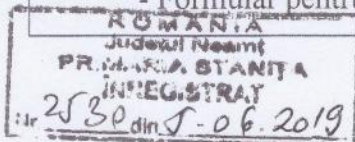 - Formular pentru
ROMÂNIA
Judeţul Neamţ
PRIMĂRIA STĂNIŢA
ÎNREGISTRAT
Nr 2530 din 5-06.2019